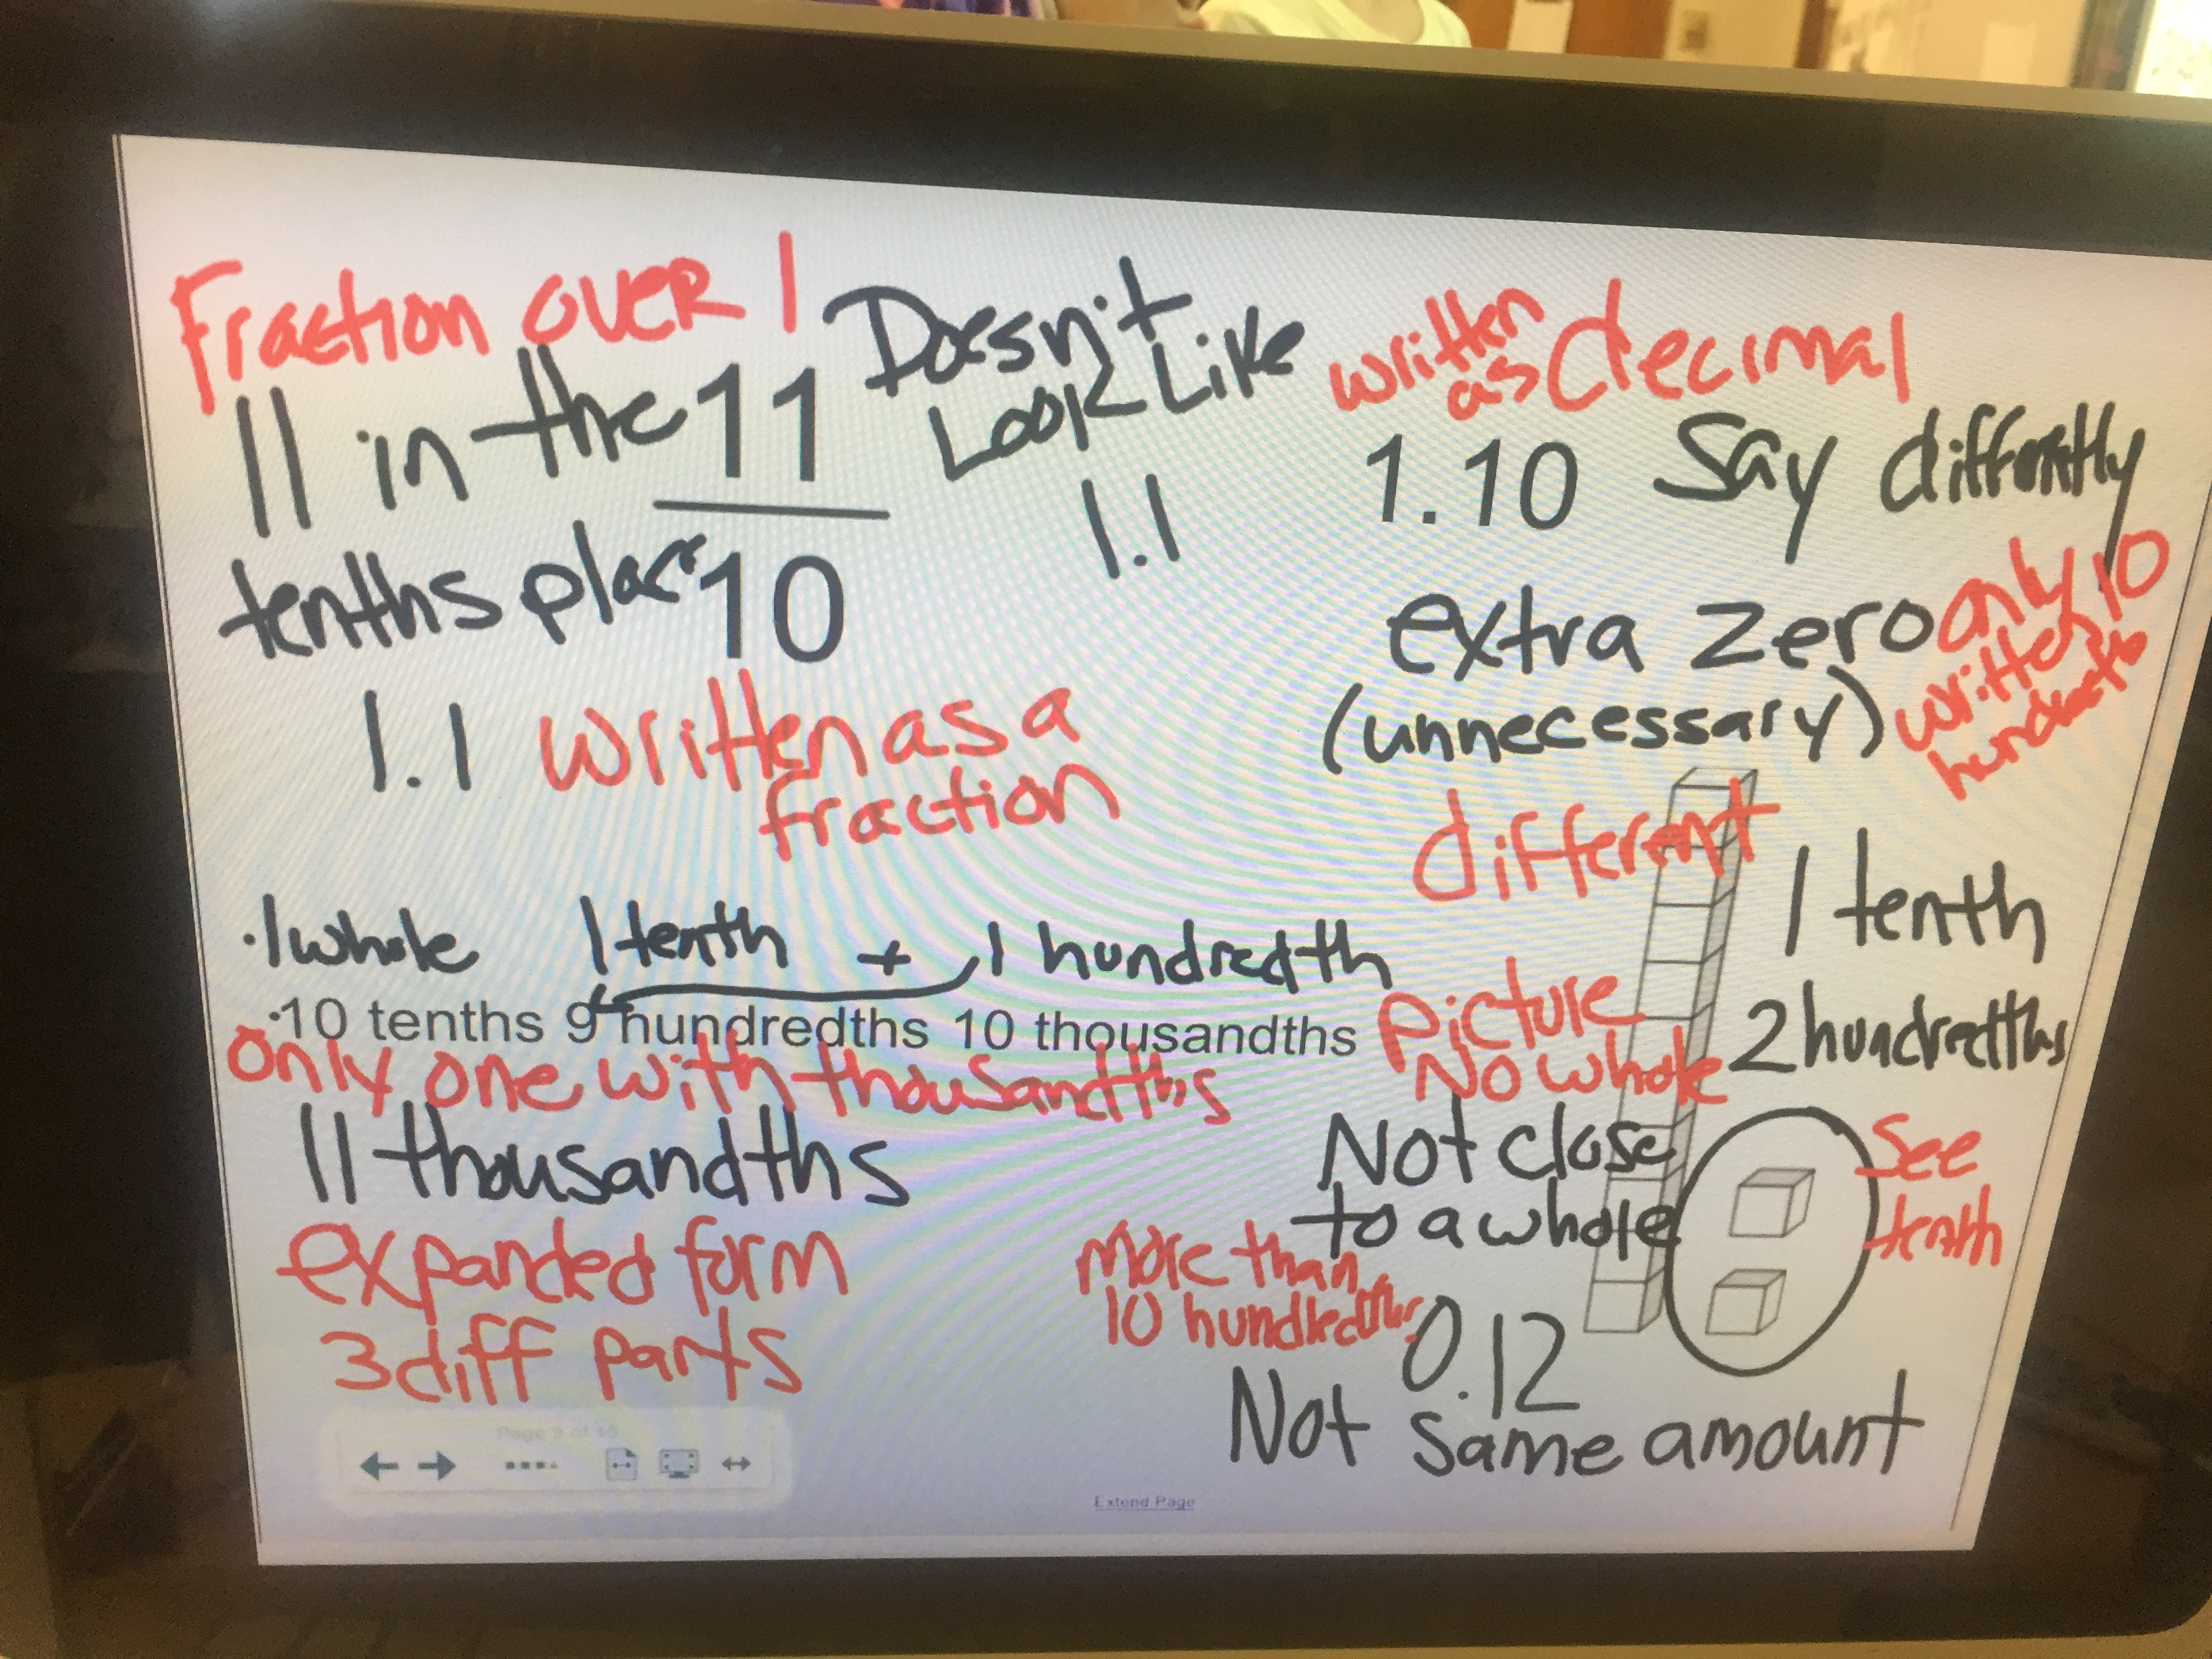 Fraction over 1
11 in the
tenths place
11
10
Doesn't
Look Like
1.1
1.1 written as a
fraction
written
as decimal
1.10 Say differently
extra zero
(unnecessary)
only 10
written
hundredths
·1 whole 1 tenth + 1 hundredth
·10 tenths 9 hundredths 10 thousandths
only one with thousandths
11 thousandths
expanded form
3 diff parts
different
1 tenth
2 hundredths
Picture
No whole
Not close
to a whole
See
tenth
more than
10 hundredths
0.12
Not same amount
Page 9 of 13
Extend Page